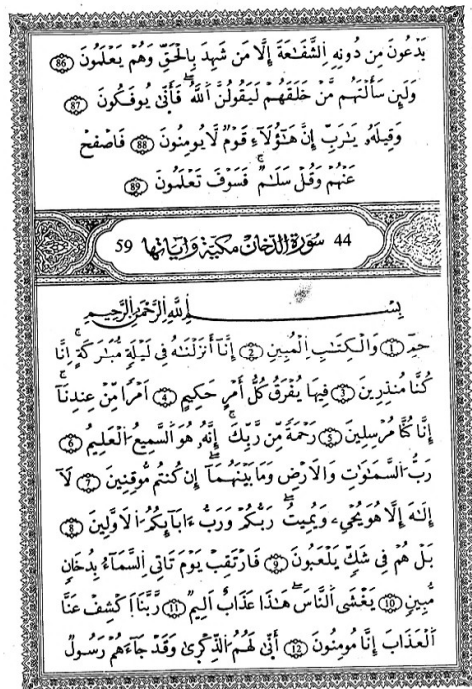 يَدْعُونَ مِن دُونِهِ اِلشَّفَٰعَةَ إِلَّا مَن شَهِدَ بِالْحَقِّ وَهُمْ يَعْلَمُونَ 86
وَلَئِن سَأَلْتَهُم مَّنْ خَلَقَهُمْ لَيَقُولُنَّ اَللَّهُ فَأَنّٰى يُوفَكُونَ 87
وَقِيلَهُۥ يَٰرَبِّ إِنَّ هَٰٓؤُلَآءِ قَوْمٌ لَّا يُومِنُونَ 88 فَاصْفَحْ
عَنْهُمْ وَقُلْ سَلَٰمٌ فَسَوْفَ تَعْلَمُونَ 89
44 سورة الدخان مكية وآياتها 59
بِسْمِ اِللَّهِ اِلرَّحْمَٰنِ اِلرَّحِيمِ
حمٓ 1 وَالْكِتَٰبِ اِلْمُبِينِ 2 إِنَّآ أَنزَلْنَٰهُ فِى لَيْلَةٍ مُّبَٰرَكَةٍ إِنَّا
كُنَّا مُنذِرِينَ 3 فِيهَا يُفْرَقُ كُلُّ أَمْرٍ حَكِيمٍ 4 اَمْرًا مِّنْ عِندِنَآ
إِنَّا كُنَّا مُرْسِلِينَ 5 رَحْمَةً مِّن رَّبِّكَ إِنَّهُۥ هُوَ اَلسَّمِيعُ اُلْعَلِيمُ 6
رَبُّ اُلسَّمَٰوَٰتِ وَالَارْضِ وَمَا بَيْنَهُمَآ إِن كُنتُم مُّوقِنِينَ 7 لَآ
إِلَٰهَ إِلَّا هُوَ يُحْىِۦ وَيُمِيتُ رَبُّكُمْ وَرَبُّ ءَابَآئِكُمُ اُلَاوَّلِينَ 8
بَلْ هُمْ فِى شَكٍّ يَلْعَبُونَ 9 فَارْتَقِبْ يَوْمَ تَاتِى اِلسَّمَآءُ بِدُخَانٍ
مُّبِينٍ 10 يَغْشَى اَلنَّاسَ هَٰذَا عَذَابٌ اَلِيمٌ 11 رَّبَّنَا اَكْشِفْ عَنَّا
اَلْعَذَابَ إِنَّا مُومِنُونَ 12 أَنّٰى لَهُمُ اُلذِّكْرٰى وَقَدْ جَآءَهُمْ رَسُولٌ